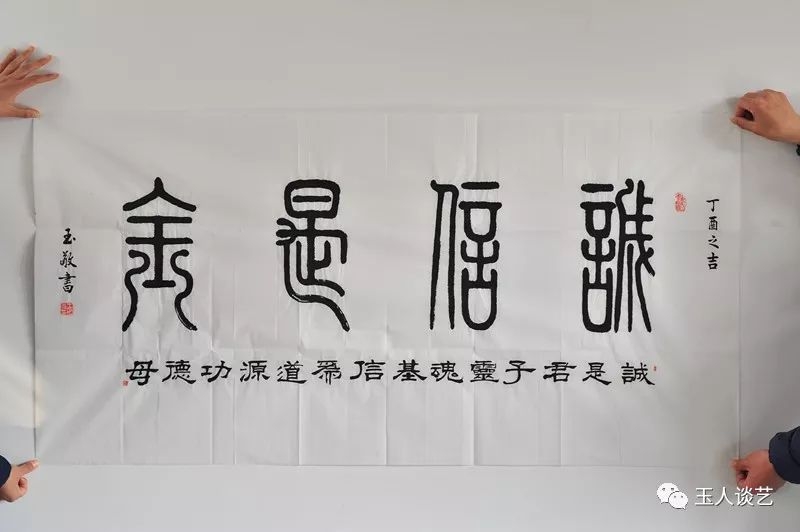 丁酉之吉
誠信是金
誠是君子靈魂基信為道源功德母
玉敬書
玉人谈艺